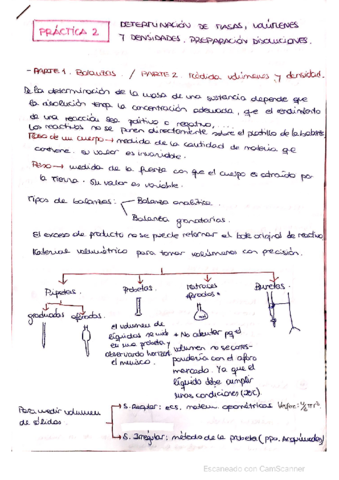 PRÁCTICA 2
DETERMINACIÓN DE MASAS, VOLÚMENES
Y DENSIDADES. PREPARACIÓN DISOLUCIONES.
- PARTE 1. Balanzas. / PARTE 2. Medida volúmenes y densidad.
De la determinación de la masa de una sustancia depende que
la disolución tenga la concentración adecuada, que el rendimiento
de una reacción sea positivo o negativo, ...
Los reactivos no se ponen directamente sobre el platillo de la balanza
de un cuerpo → medida de la cantidad de materia que
contiene. Su valor es invariable.
Peso → medida de la fuerza con que el cuerpo es atraído por
la tierra. Su valor es variable.
Tipos de balanzas:
Balanza analítica.
Balanza granatarios.
El exceso de producto no se puede retornar al bote original de reactivo
Material volumétrico para tomar volúmenes con precisión.
Pipetas.
Probetas
matraces
aforados *
Buretas
graduadas
aforadas.
el volumen de
líquidos se mide
en una probeta y
observando
el menisco.
* No calentar pq el
volumen no se corres-
pondería con el aforo
marcado. Ya que el
líquido debe cumplir
unas condiciones (20ºC).
Para medir volumen
de sólidos
S. Regular: ecs. matem
S. Irregular: método de la probeta (ppo. Arquímedes)
Escaneado con CamScanner